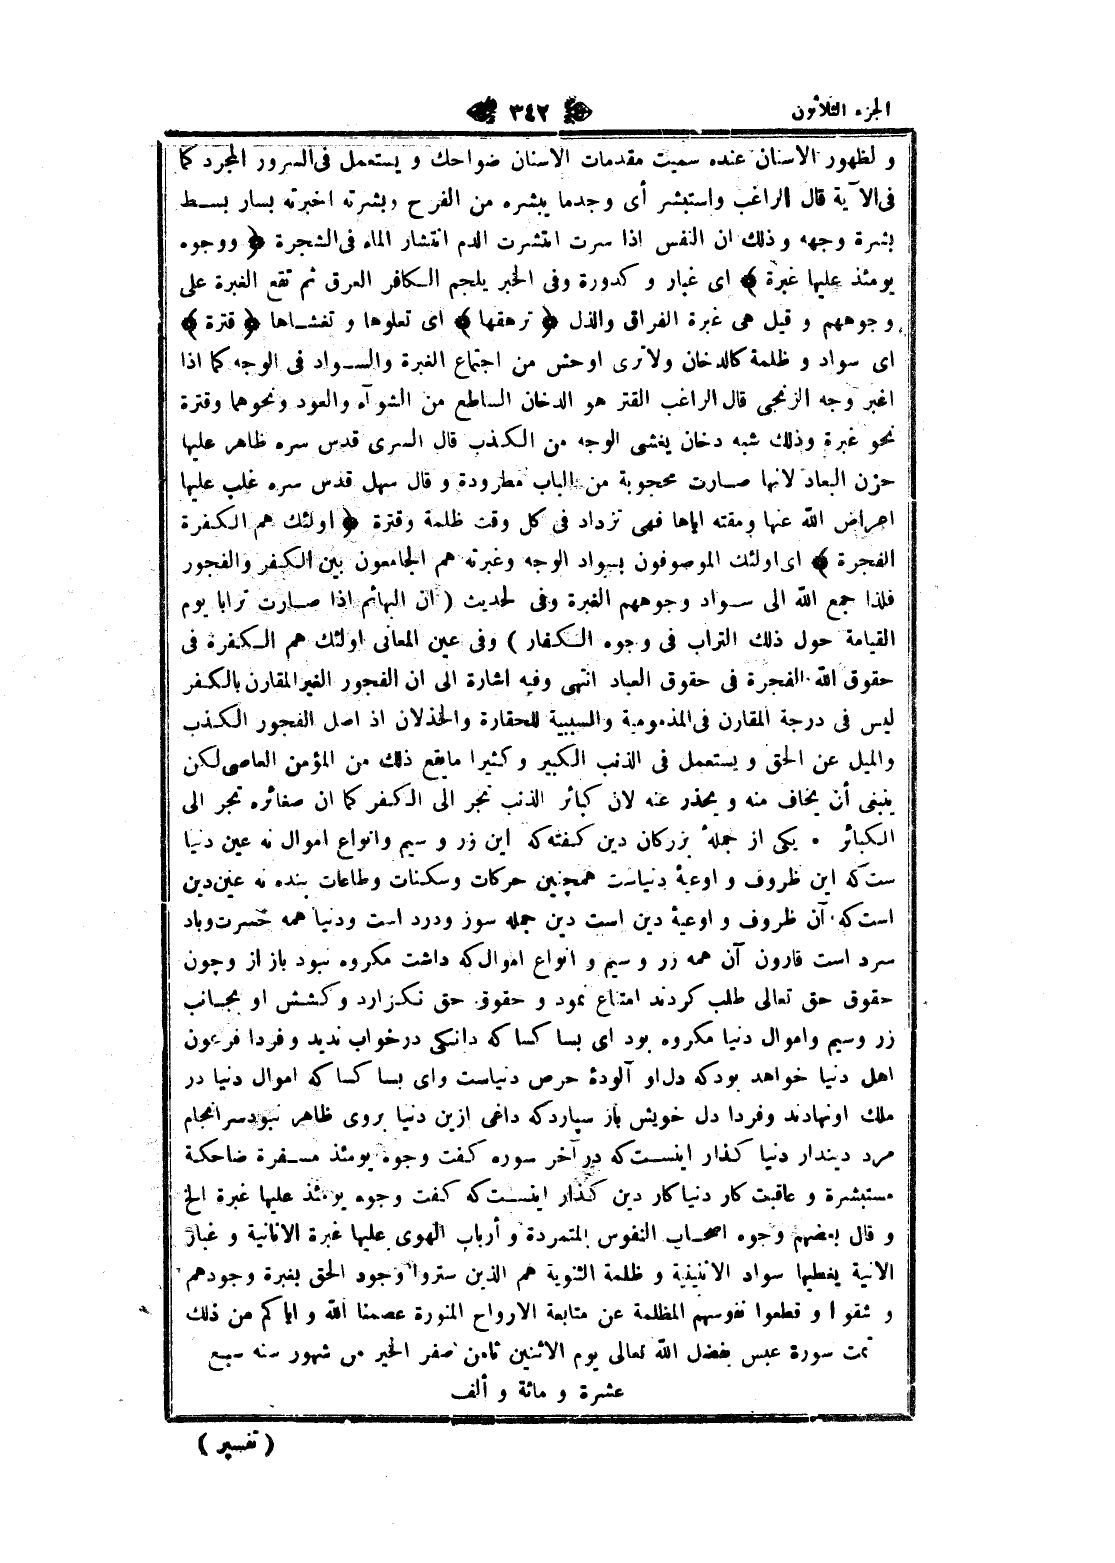 الجزء الثلاثون ٣٤٢
و لظهور الاسنان عنده سميت مقدمات الاسنان ضواحك و يستعمل فى السرور المجرد كما
فى الآية قال الراغب واستبشر أى وجدما يبشره من الفرح وبشرته اخبرته بسار بسط
بشرة وجهه و ذلك ان النفس اذا سرت انتشرت الدم انتشار الماء فى الشجرة ﴿ ووجوه
يومئذ عليها غبرة ﴾ اى غبار و كدورة وفى الخبر يلجم الكافر العرق ثم تقع الغبرة على
وجوههم و قيل هى غبرة الفراق والذل ﴿ ترهقها ﴾ اى تعلوها و تغشاها ﴿ قترة ﴾
اى سواد و ظلمة كالدخان ولا ترى اوحش من اجتماع الغبرة والسواد فى الوجه كما اذا
اغبر وجه الزنجى قال الراغب القتر هو الدخان الساطع من الشوآء والعود ونحوهما وقترة
نحو غبرة وذلك شبه دخان يغشى الوجه من الكذب قال السرى قدس سره ظاهر عليها
حزن البعاد لانها صارت محجوبة من الباب مطرودة و قال سهل قدس سره غلب عليها
اعراض الله عنها ومقته اياها فهى تزداد فى كل وقت ظلمة وقترة ﴿ اولئك هم الكفرة
الفجرة ﴾ اى اولئك الموصوفون بسواد الوجه وغبرته هم الجامعون بين الكفر والفجور
فلذا جمع الله الى سواد وجوههم الغبرة وفى لحديث ( ان البهائم اذا صارت ترابا يوم
القيامة حول ذلك التراب فى وجوه الكفار ) وفى عين المعانى اولئك هم الكفرة فى
حقوق الله الفجرة فى حقوق العباد انتهى وفيه اشارة الى ان الفجور الغير المقارن بالكفر
ليس فى درجة المقارن فى المذمومية والسببية للحقارة والخذلان اذ اصل الفجور الكذب
والميل عن الحق و يستعمل فى الذنب الكبير و كثيرا ما يقع ذلك من المؤمن العاصى لكن
ينبغى أن يخاف منه و يحذر عنه لان كبائر الذنب تجر الى الكفر كما ان صغائره تجر الى
الكبائر • يكى از جملهٔ بزركان دين كفته كه اين زر و سيم وانواع اموال نه عين دنيا
ست كه اين ظروف و اوعيهٔ دنياست همچنين حركات وسكنات وطاعات بنده نه عين دين
است كه آن ظروف و اوعيهٔ دين است دين جمله سوز ودرد است ودنيا همه حسرت وباد
سرد است قارون آن همه زر و سيم و انواع اموال كه داشت مكروه نبود باز از وچون
حقوق حق تعالى طلب كردند امتناع نمود و حقوق حق نكزارد وكشش او بجانب
زر وسيم واموال دنيا مكروه بود اى بسا كسا كه دانكى درخواب نديد وفردا فرعون
اهل دنيا خواهد بود كه دل او آلودهٔ حرص دنياست واى بسا كسا كه اموال دنيا در
ملك اونهادند وفردا دل خويش باز سپارد كه داغى ازين دنيا بروى ظاهر نبود سر انجام
مرد ديندار دنيا كذار اينست كه در آخر سوره كفت وجوه يومئذ مسفرة ضاحكة
مستبشرة و عاقبت كار دنيا كار دين كذار اينست كه كفت وجوه يومئذ عليها غبرة الخ
و قال بعضهم وجوه اصحاب النفوس المتمردة و أرباب الهوى عليها غبرة الانانية و غبار
الانية يغطيها سواد الاثنينية و ظلمة الثنوية هم الذين ستروا وجود الحق بغبرة وجودهم
و شقوا و قطعوا نفوسهم المظلمة عن متابعة الارواح المنورة عصمنا الله و اياكم من ذلك
تمت سورة عبس بفضل الله تعالى يوم الاثنين ثامن صفر الخير من شهور سنه سبع
عشرة و مائة و ألف
( تفسير )